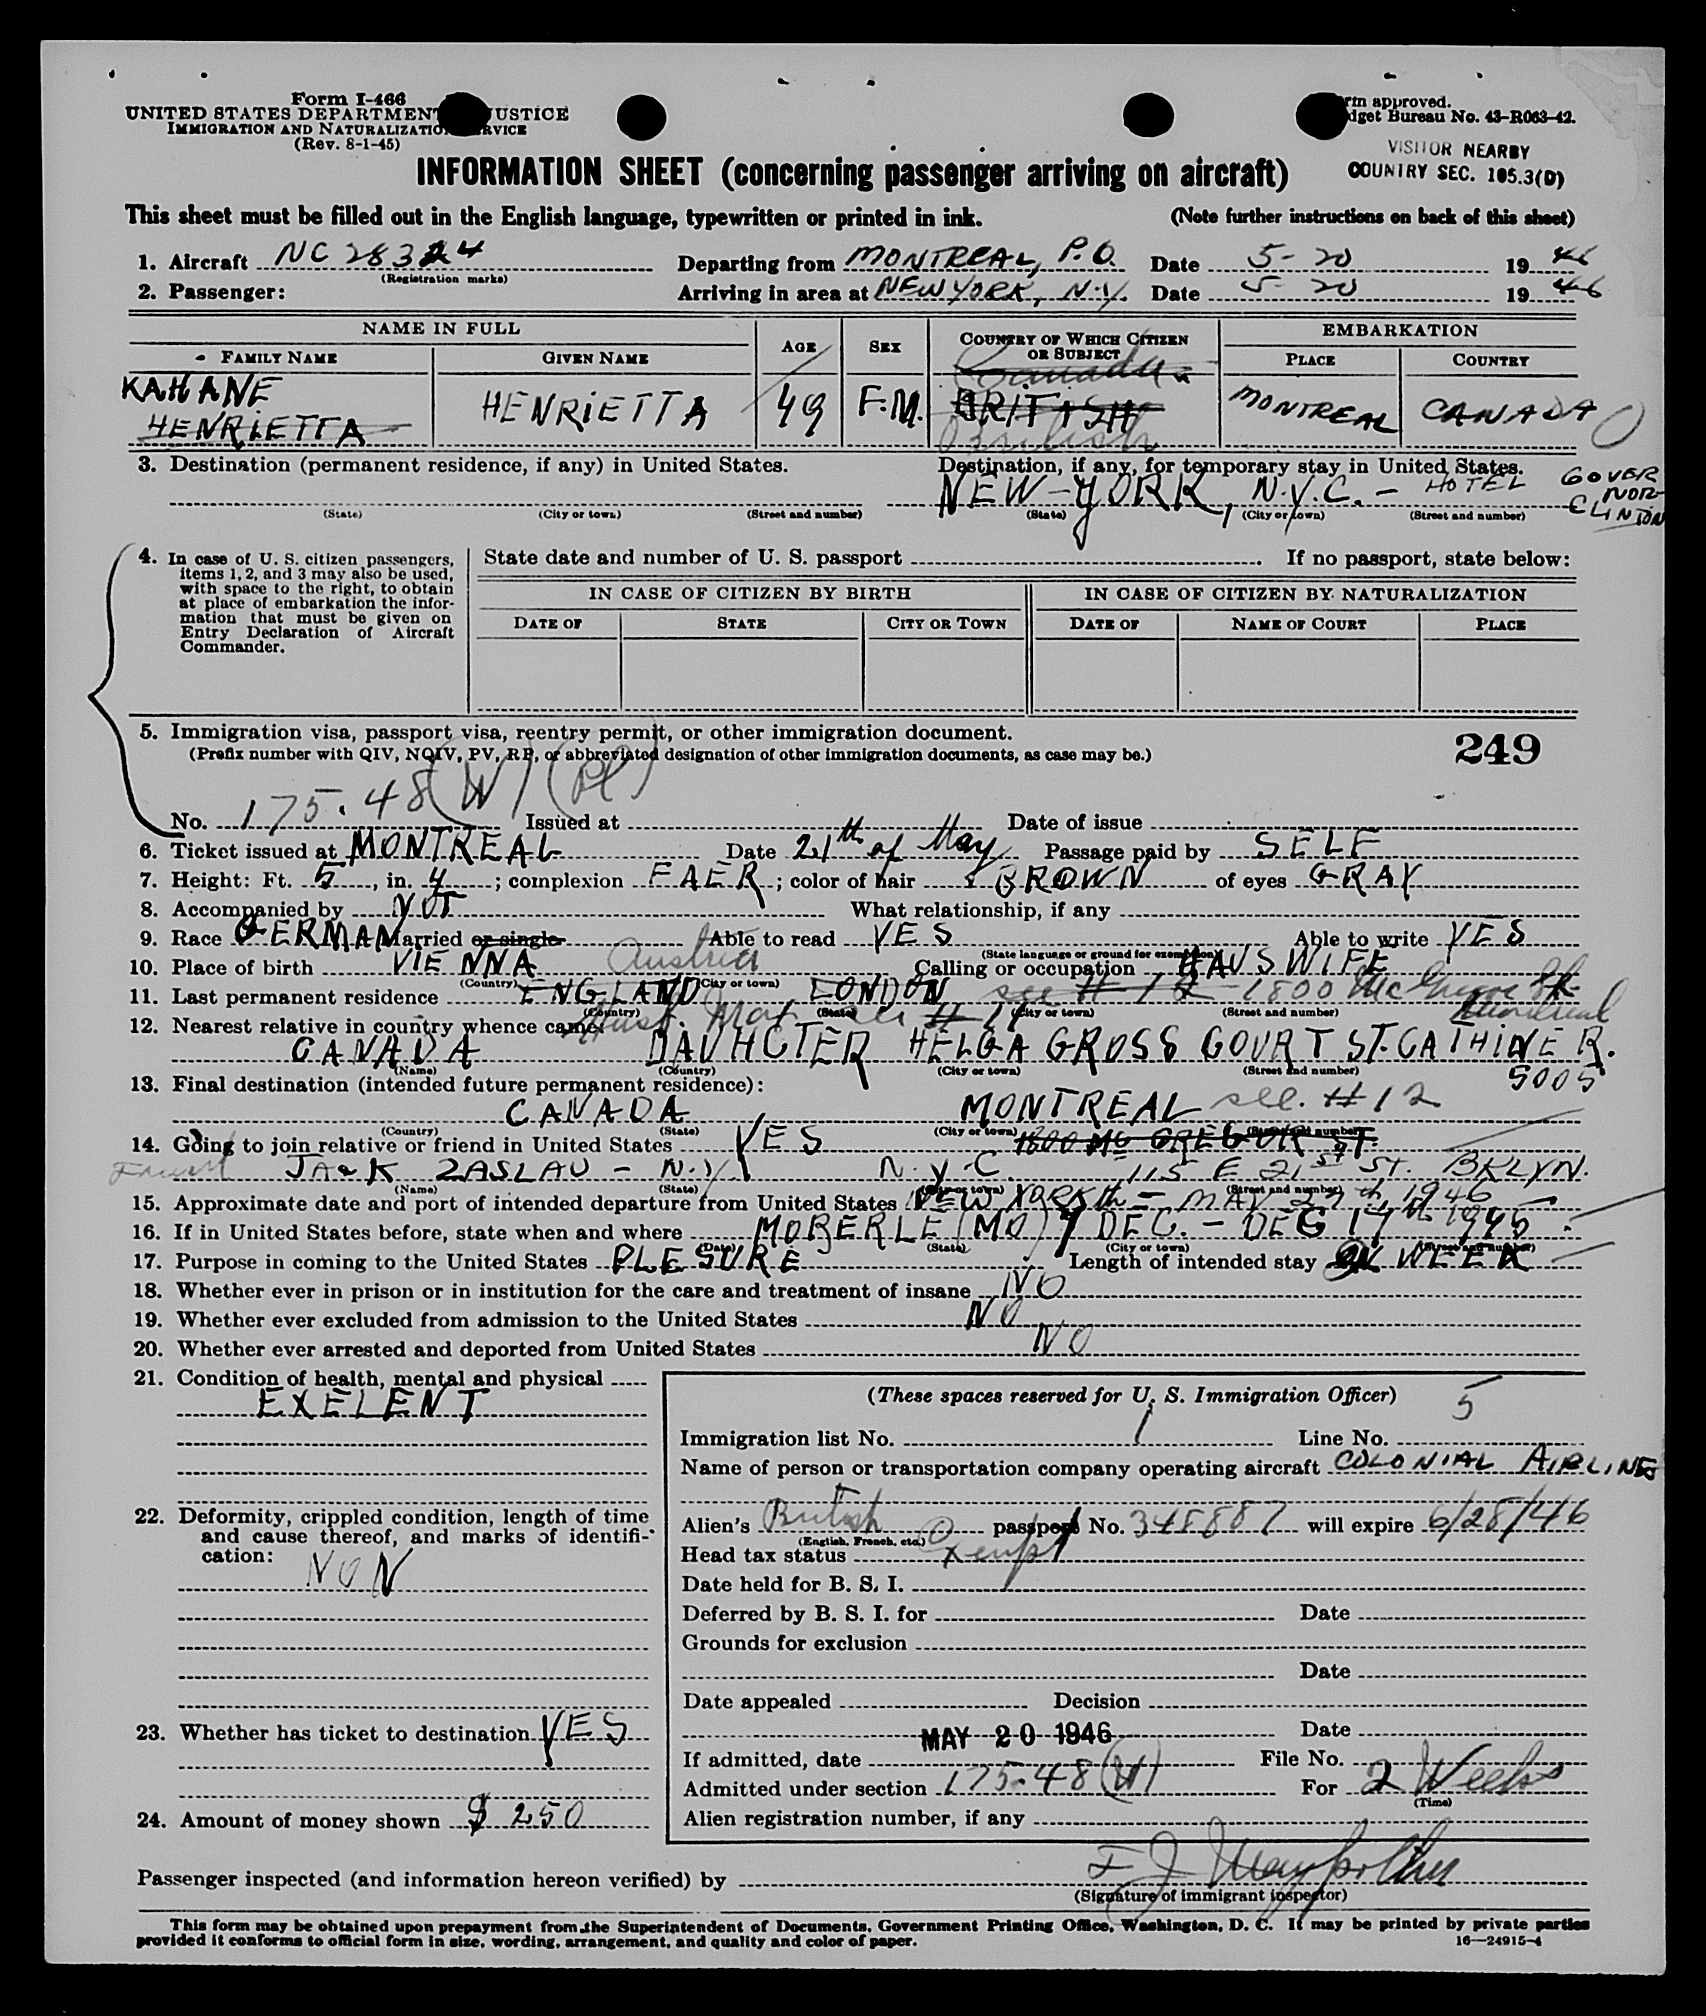 Form I-466
UNITED STATES DEPARTMENT JUSTICE
IMMIGRATION AND NATURALIZATION SERVICE
(Rev. 8-1-45)
Form approved.
Budget Bureau No. 43-R063-42.
VISITOR NEARBY
COUNTRY SEC. 105.3(D)
INFORMATION SHEET (concerning passenger arriving on aircraft)
This sheet must be filled out in the English language, typewritten or printed in ink. (Note further instructions on back of this sheet)
1. Aircraft NC 28324 Departing from MONTREAL, P.Q. Date 5-20 1946
(Registration marks)
2. Passenger: Arriving in area at NEW YORK, N.Y. Date 5-20 1946
NAME IN FULL AGE SEX COUNTRY OF WHICH CITIZEN OR SUBJECT EMBARKATION
FAMILY NAME GIVEN NAME PLACE COUNTRY
KAHANE HENRIETTA 49 F.M. Canada MONTREAL CANADA
HENRIETTA BRITISH
British
3. Destination (permanent residence, if any) in United States. Destination, if any, for temporary stay in United States.
NEW-YORK, N.Y.C. - HOTEL GOVERNOR CLINTON
(State) (City or town) (Street and number) (State) (City or town) (Street and number)
4. In case of U. S. citizen passengers, items 1, 2, and 3 may also be used, with space to the right, to obtain at place of embarkation the information that must be given on Entry Declaration of Aircraft Commander.
State date and number of U. S. passport If no passport, state below:
IN CASE OF CITIZEN BY BIRTH IN CASE OF CITIZEN BY NATURALIZATION
DATE OF STATE CITY OR TOWN DATE OF NAME OF COURT PLACE
5. Immigration visa, passport visa, reentry permit, or other immigration document.
(Prefix number with QIV, NQIV, PV, RP, or abbreviated designation of other immigration documents, as case may be.)
249
No. 175.48 (W) (Pl) Issued at Date of issue
6. Ticket issued at MONTREAL Date 21th of May Passage paid by SELF
7. Height: Ft. 5, in. 4; complexion FAER; color of hair BROWN of eyes GRAY
8. Accompanied by NOT What relationship, if any
9. Race GERMAN Married or single Able to read YES Able to write YES
(State language or ground for exemption)
10. Place of birth VIENNA Austria Calling or occupation HAUSWIFE
(Country) (City or town)
11. Last permanent residence ENGLAND LONDON see #12 1800 McGregor St. Montreal
(Country) (State) (City or town) (Street and number)
12. Nearest relative in country whence came:
CANADA DAUHGTER HELGA GROSS COURT ST. CATHINER. 5005
(Name) (Country) (City or town) (Street and number)
13. Final destination (intended future permanent residence):
CANADA MONTREAL see #12
(Country) (State) (City or town) (Street and number)
1800 Mc GREGOR ST.
14. Going to join relative or friend in United States YES
Friend JACK ZASLAU - N.Y. N.Y.C. 115 E 21st ST. BKLYN.
(Name) (State) (City or town) (Street and number)
15. Approximate date and port of intended departure from United States NEW YORK - MAY 27th, 1946
16. If in United States before, state when and where MOBERLE (MO) 4 DEC. - DEC 17th 1945
(Date) (State) (City or town) (Street and number)
17. Purpose in coming to the United States PLESURE Length of intended stay ON WEEK
18. Whether ever in prison or in institution for the care and treatment of insane NO
19. Whether ever excluded from admission to the United States NO
20. Whether ever arrested and deported from United States NO
21. Condition of health, mental and physical
EXELENT
22. Deformity, crippled condition, length of time and cause thereof, and marks of identification: NON
23. Whether has ticket to destination YES
24. Amount of money shown $ 250
(These spaces reserved for U. S. Immigration Officer)
Immigration list No. 1 Line No. 5
Name of person or transportation company operating aircraft COLONIAL AIRLINES
Alien's British passport No. 348887 will expire 6/28/46
(English, French, etc.)
Head tax status Xempt
Date held for B. S. I.
Deferred by B. S. I. for Date
Grounds for exclusion
Date
Date appealed Decision
Date
If admitted, date MAY 20 1946 File No.
Admitted under section 175.48 (W) For 2 Weeks
(Time)
Alien registration number, if any
Passenger inspected (and information hereon verified) by
(Signature of immigrant inspector)
This form may be obtained upon prepayment from the Superintendent of Documents, Government Printing Office, Washington, D. C. It may be printed by private parties
provided it conforms to official form in size, wording, arrangement, and quality and color of paper.
16—24915-4